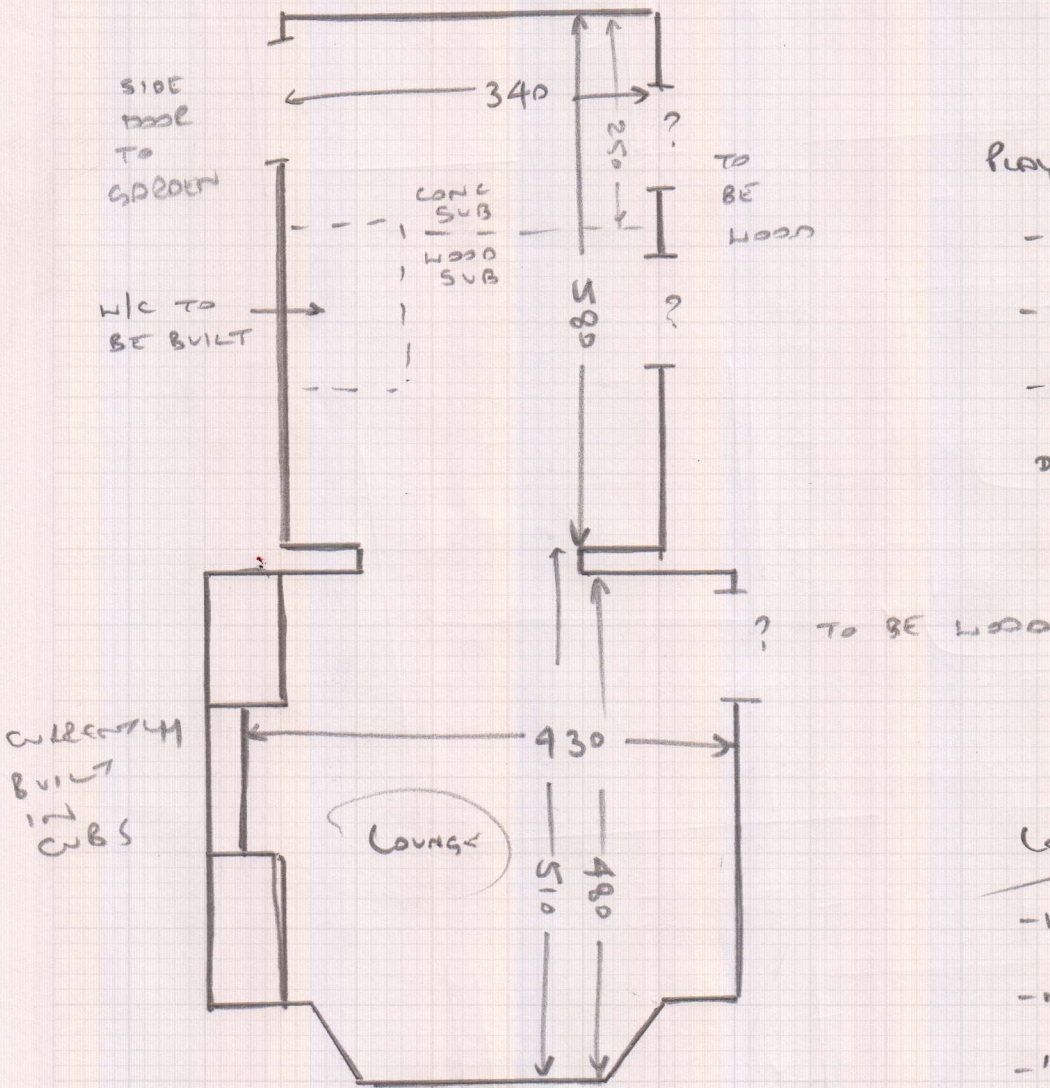 SIDE
DOOR
TO
GARDEN
340
250
?
TO
BE
WOOD
PLAY
-
CONC
SUB
WOOD
SUB
-
W/C TO
BE BUILT
580
?
-
? TO BE WOOD
CURRENTLY
BUILT
IN
CUBS
430
LOUNGE
510
480
-
-
-